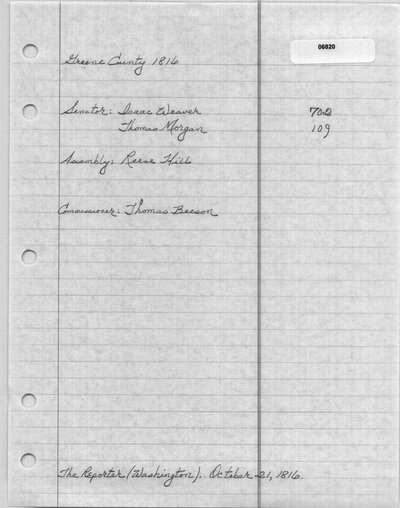 06820
Greene County 1816
Senator: Isaac Weaver 702
Thomas Morgan 109
Assembly: Reese Hill
Commissioner: Thomas Beeson
The Reporter (Washington). October 21, 1816.